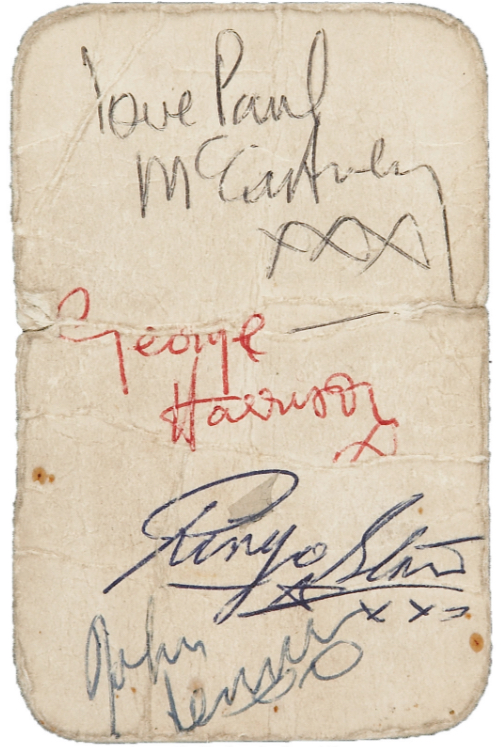 love Paul
McCartney
XXX
George
Harrison
X
Ringo Starr
xxx
John
Lennon